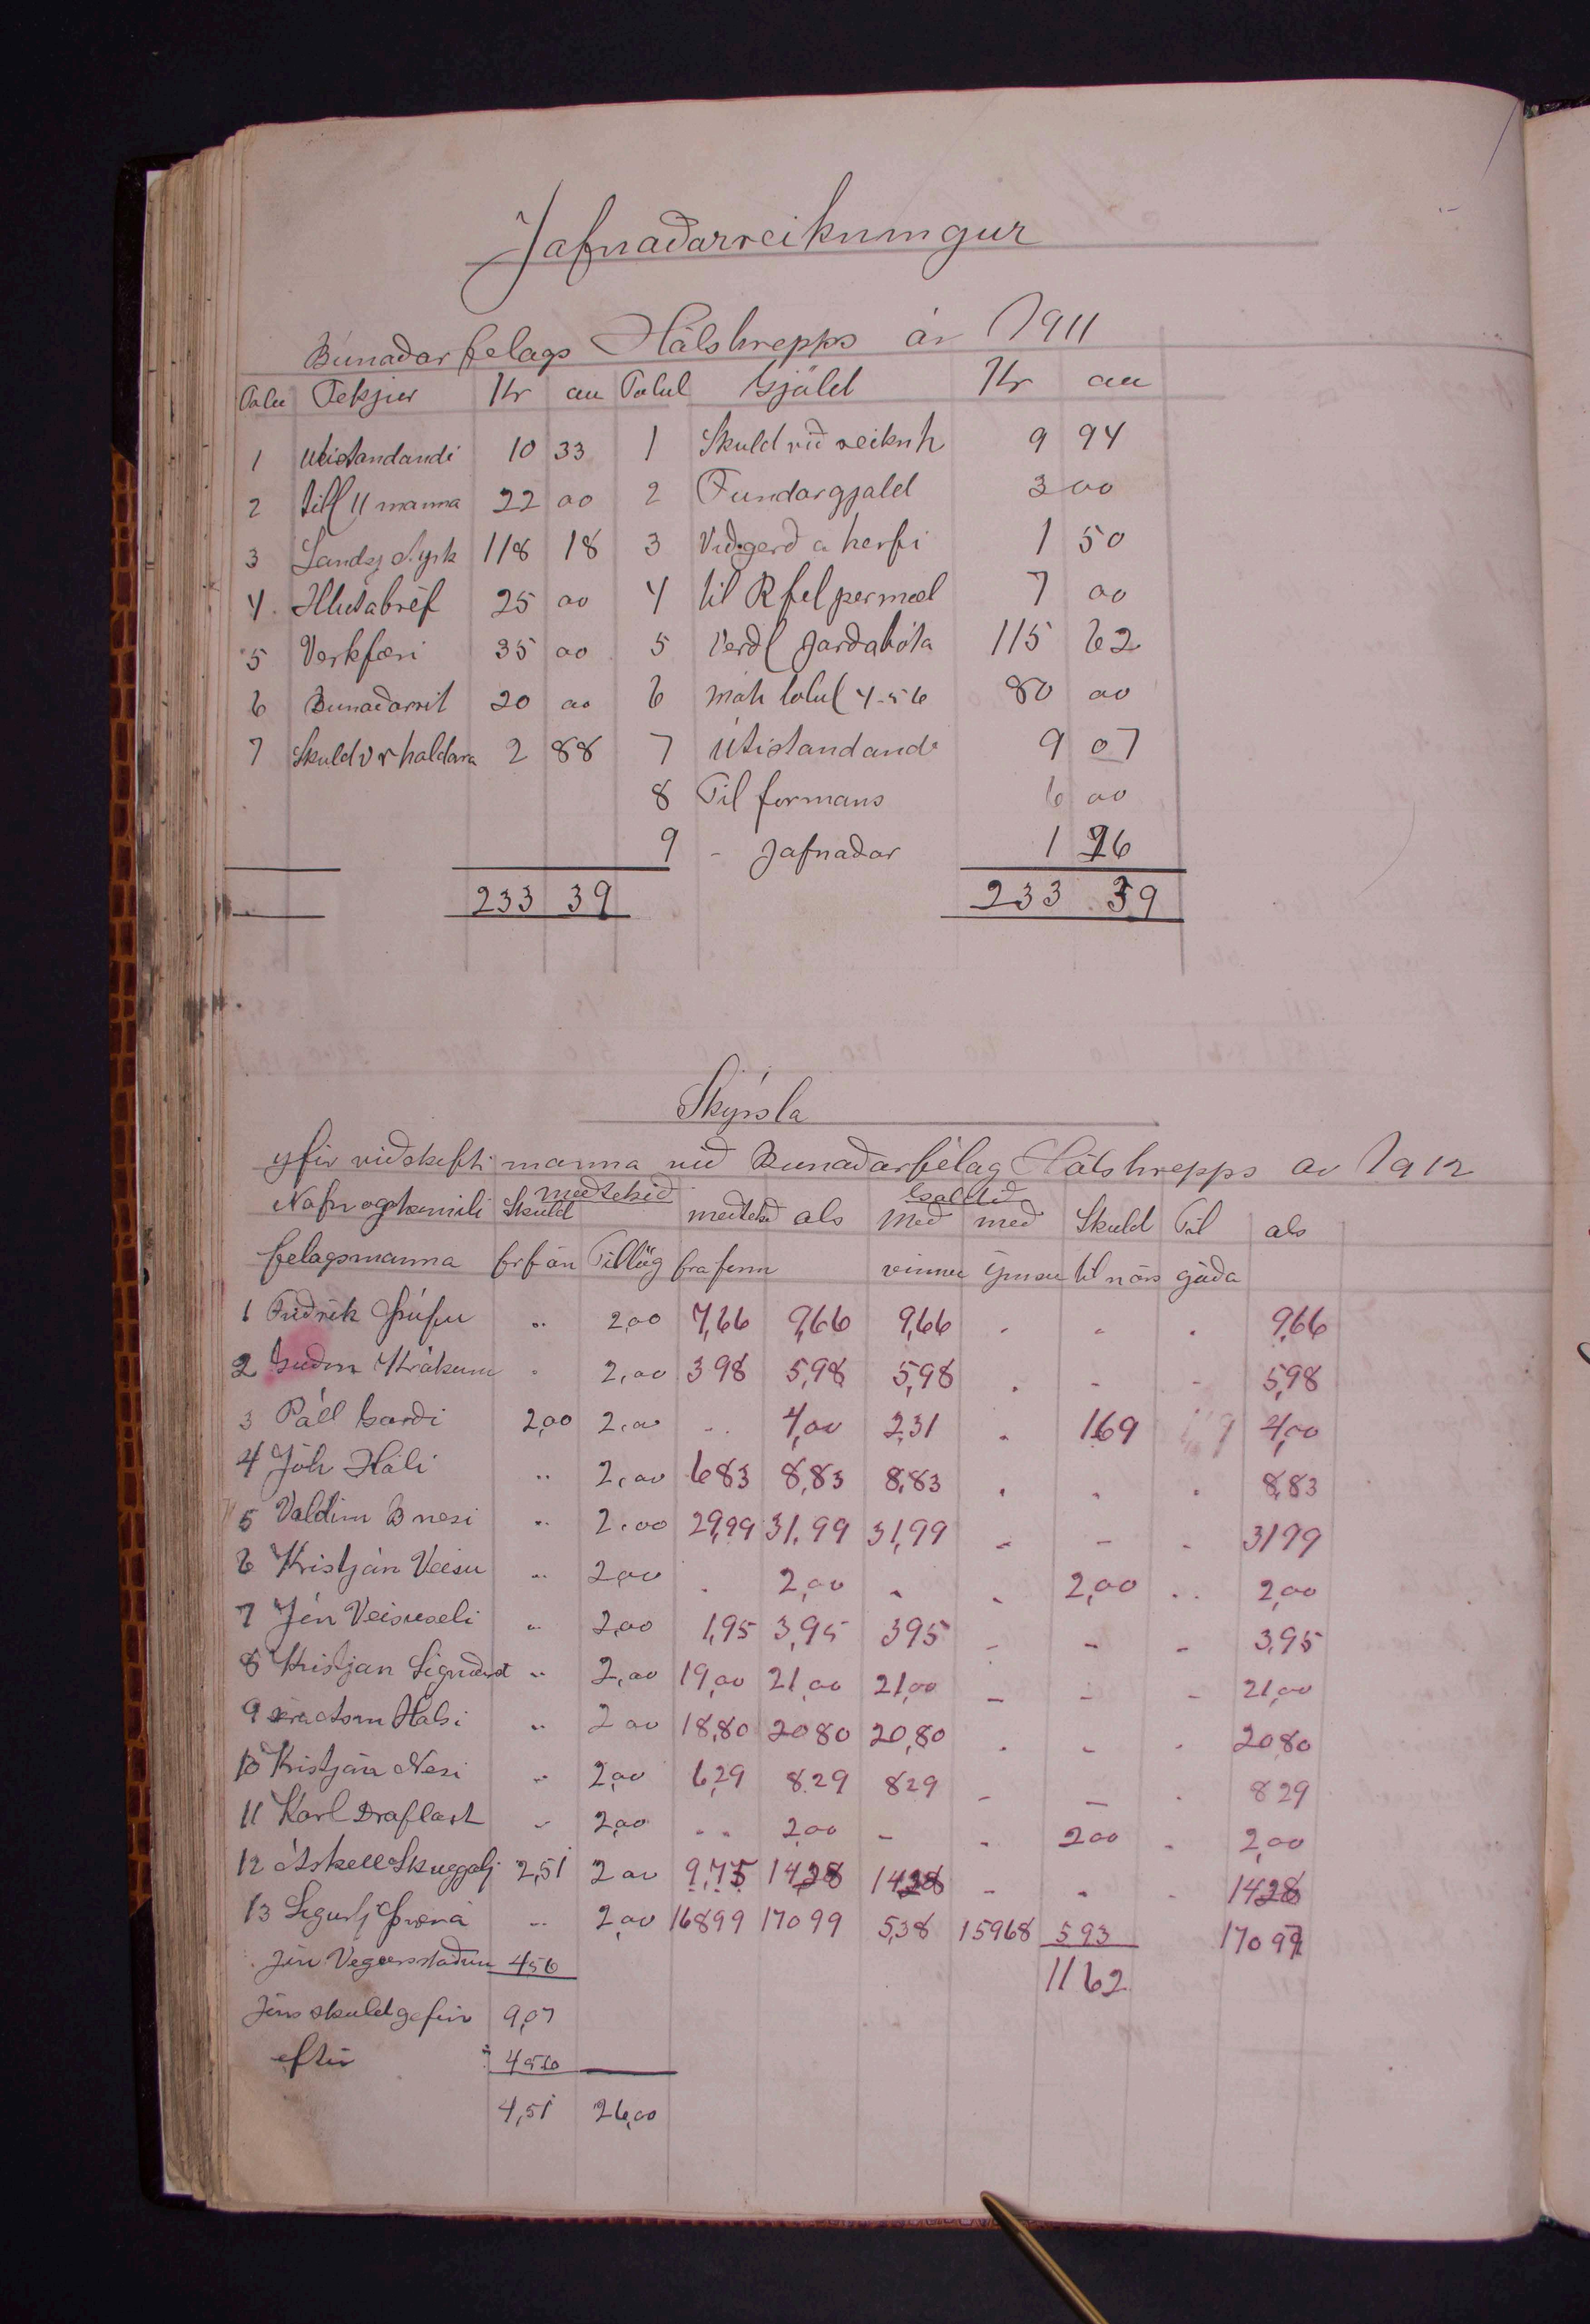 Jafnaðarreikningur
Búnaðarfelags Hálshrepps ár 1911
Tekjur Kr au Gjäld Kr au
1 Utistandandi 10 33 1 Skuld við reiknh 9 94
2 till 11 manna 22 00 2 Fundargjald 3 00
3 118 18 3 Viðgerð a herfi 1 50
4 Hlutabréf 25 00 4 til R fel 7 00
5 Verkfæri 35 00 5 Verðl Jarðabóta 115 62
6 Bunaðarrit 20 00 6 4-5 6 80 00
7 Skuld v r haldara 2 88 7 Útistandandi 9 07
8 Til formans 6 00
9 - Jafnaðar 1 26
233 39 233 39
Skýrsla
yfir viðskifti manna við Bunaðarfélag Hálshrepps ar 1912
meðtekið
Nafn og heimili Skuld meðtekið als Með með Skuld Til als
felagsmanna fr f ári Tillög vinnu ýmsu til næs góða
1 Friðrik Þúfu .. 2,00 7,66 9,66 9,66 - - . 9,66
2 Guðm Krákum - 2,00 3 98 5,98 5,98 . - - 5,98
3 Páll Garði 2,00 2,00 .. 4,00 2,31 . 1.69 4,00
4 Jóh Háli .. 2,00 6 83 8,83 8,83 . . . 8,83
5 Valdim B nesi .. 2.00 29,99 31.99 31,99 - - - 3199
6 Kristján Veisu .. 2,00 . 2,00 - . 2,00 .. 2,00
7 Jón Veisuseli .. 2,00 1,95 3,95 395 - - - 3,95
8 Kristjan .. 2,00 19,00 21,00 21,00 - - - 21,00
9 Hálsi .. 2 00 18,80 20 80 20,80 . - - 20,80
10 Kristján Nesi .. 2,00 6,29 8.29 829 - - . 8 29
11 Karl Draflast .. 2,00 .. 2,00 - . 200 . 2,00
12 Áskell Skuggabj 2,51 2 00 9,75 14,28 1428 - . - 1428
13 Sigurbj Þverá ... 2,00 16899 17099 5,38 15968 593 17099
Jón Végeirsstaðum 4,56 1162
Jóns skuld gefin 9,07
eftir ÷ 4,56
4,51 26,00